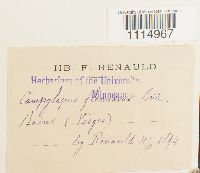 1114967
HB. F. RENAULD
Herbarium of the University,
Minnesota
Campylopus flexuosus Brid.
Bains (Vosges)
leg Renauld 1894